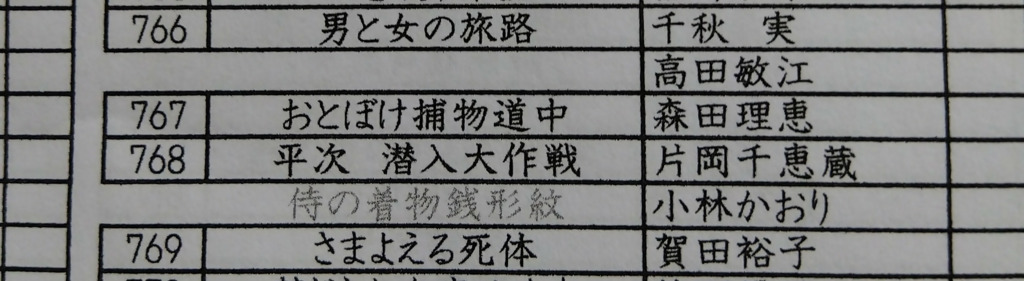 766 男と女の旅路 千秋 実
高田敏江
767 おとぼけ捕物道中 森田理恵
768 平次 潜入大作戦 片岡千恵蔵
侍の着物銭形紋 小林かおり
769 さまよえる死体 賀田裕子